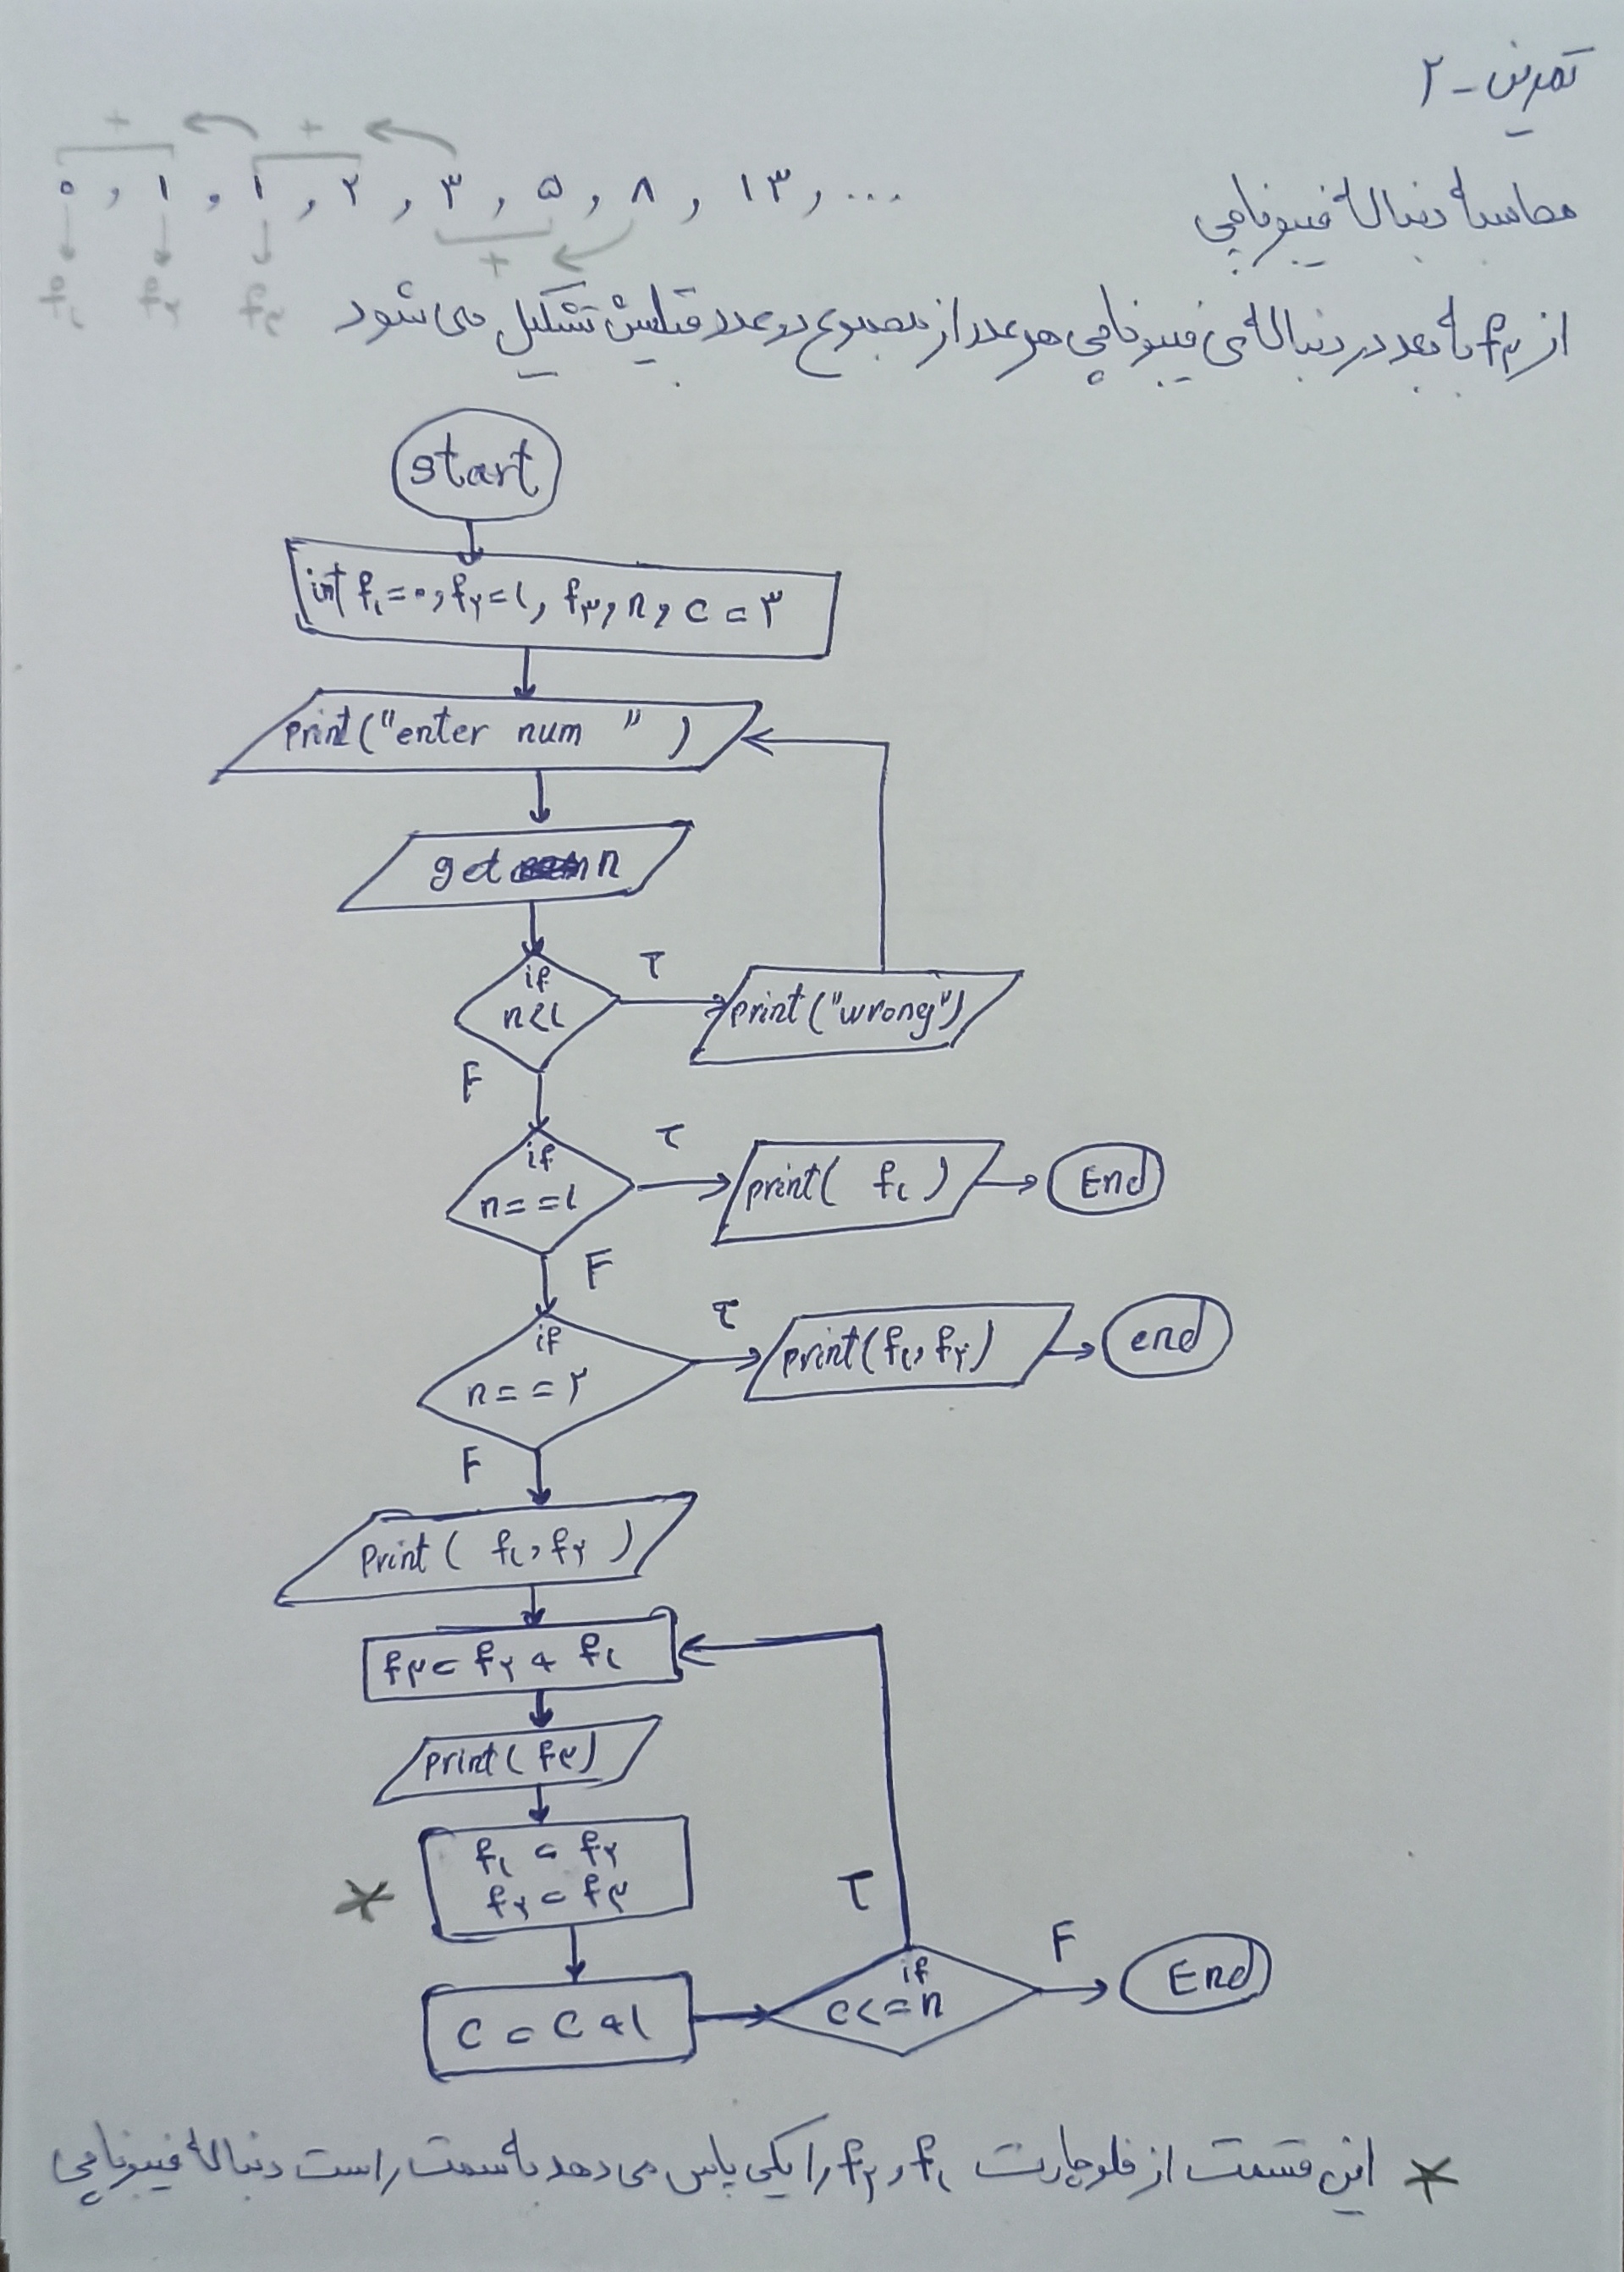 تمرین - ۲
محاسبه دنباله فیبوناچی
۰ , ۱ , ۱ , ۲ , ۳ , ۵ , ۸ , ۱۳ , ...
+ + +
f۱ f۲ f۳
از f۳ به بعد در دنباله ی فیبوناچی هر عدد از مجموع دو عدد قبلیش تشکیل می شود
start
int f۱=۰, f۲=۱, f۳, n, c = ۳
print("enter num ")
get n
if
n<۱
T
print("wrong")
F
if
n==۱
T
print( f۱ )
End
F
if
n==۲
T
print(f۱, f۲)
end
F
Print ( f۱, f۲ )
f۳ = f۲ + f۱
print( f۳)
f۱ = f۲
f۲ = f۳
*
C = C + ۱
if
c<=n
T
F
End
* این قسمت از فلوچارت f۱ و f۲ را یکی پاس می دهد به سمت راست دنباله فیبوناچی